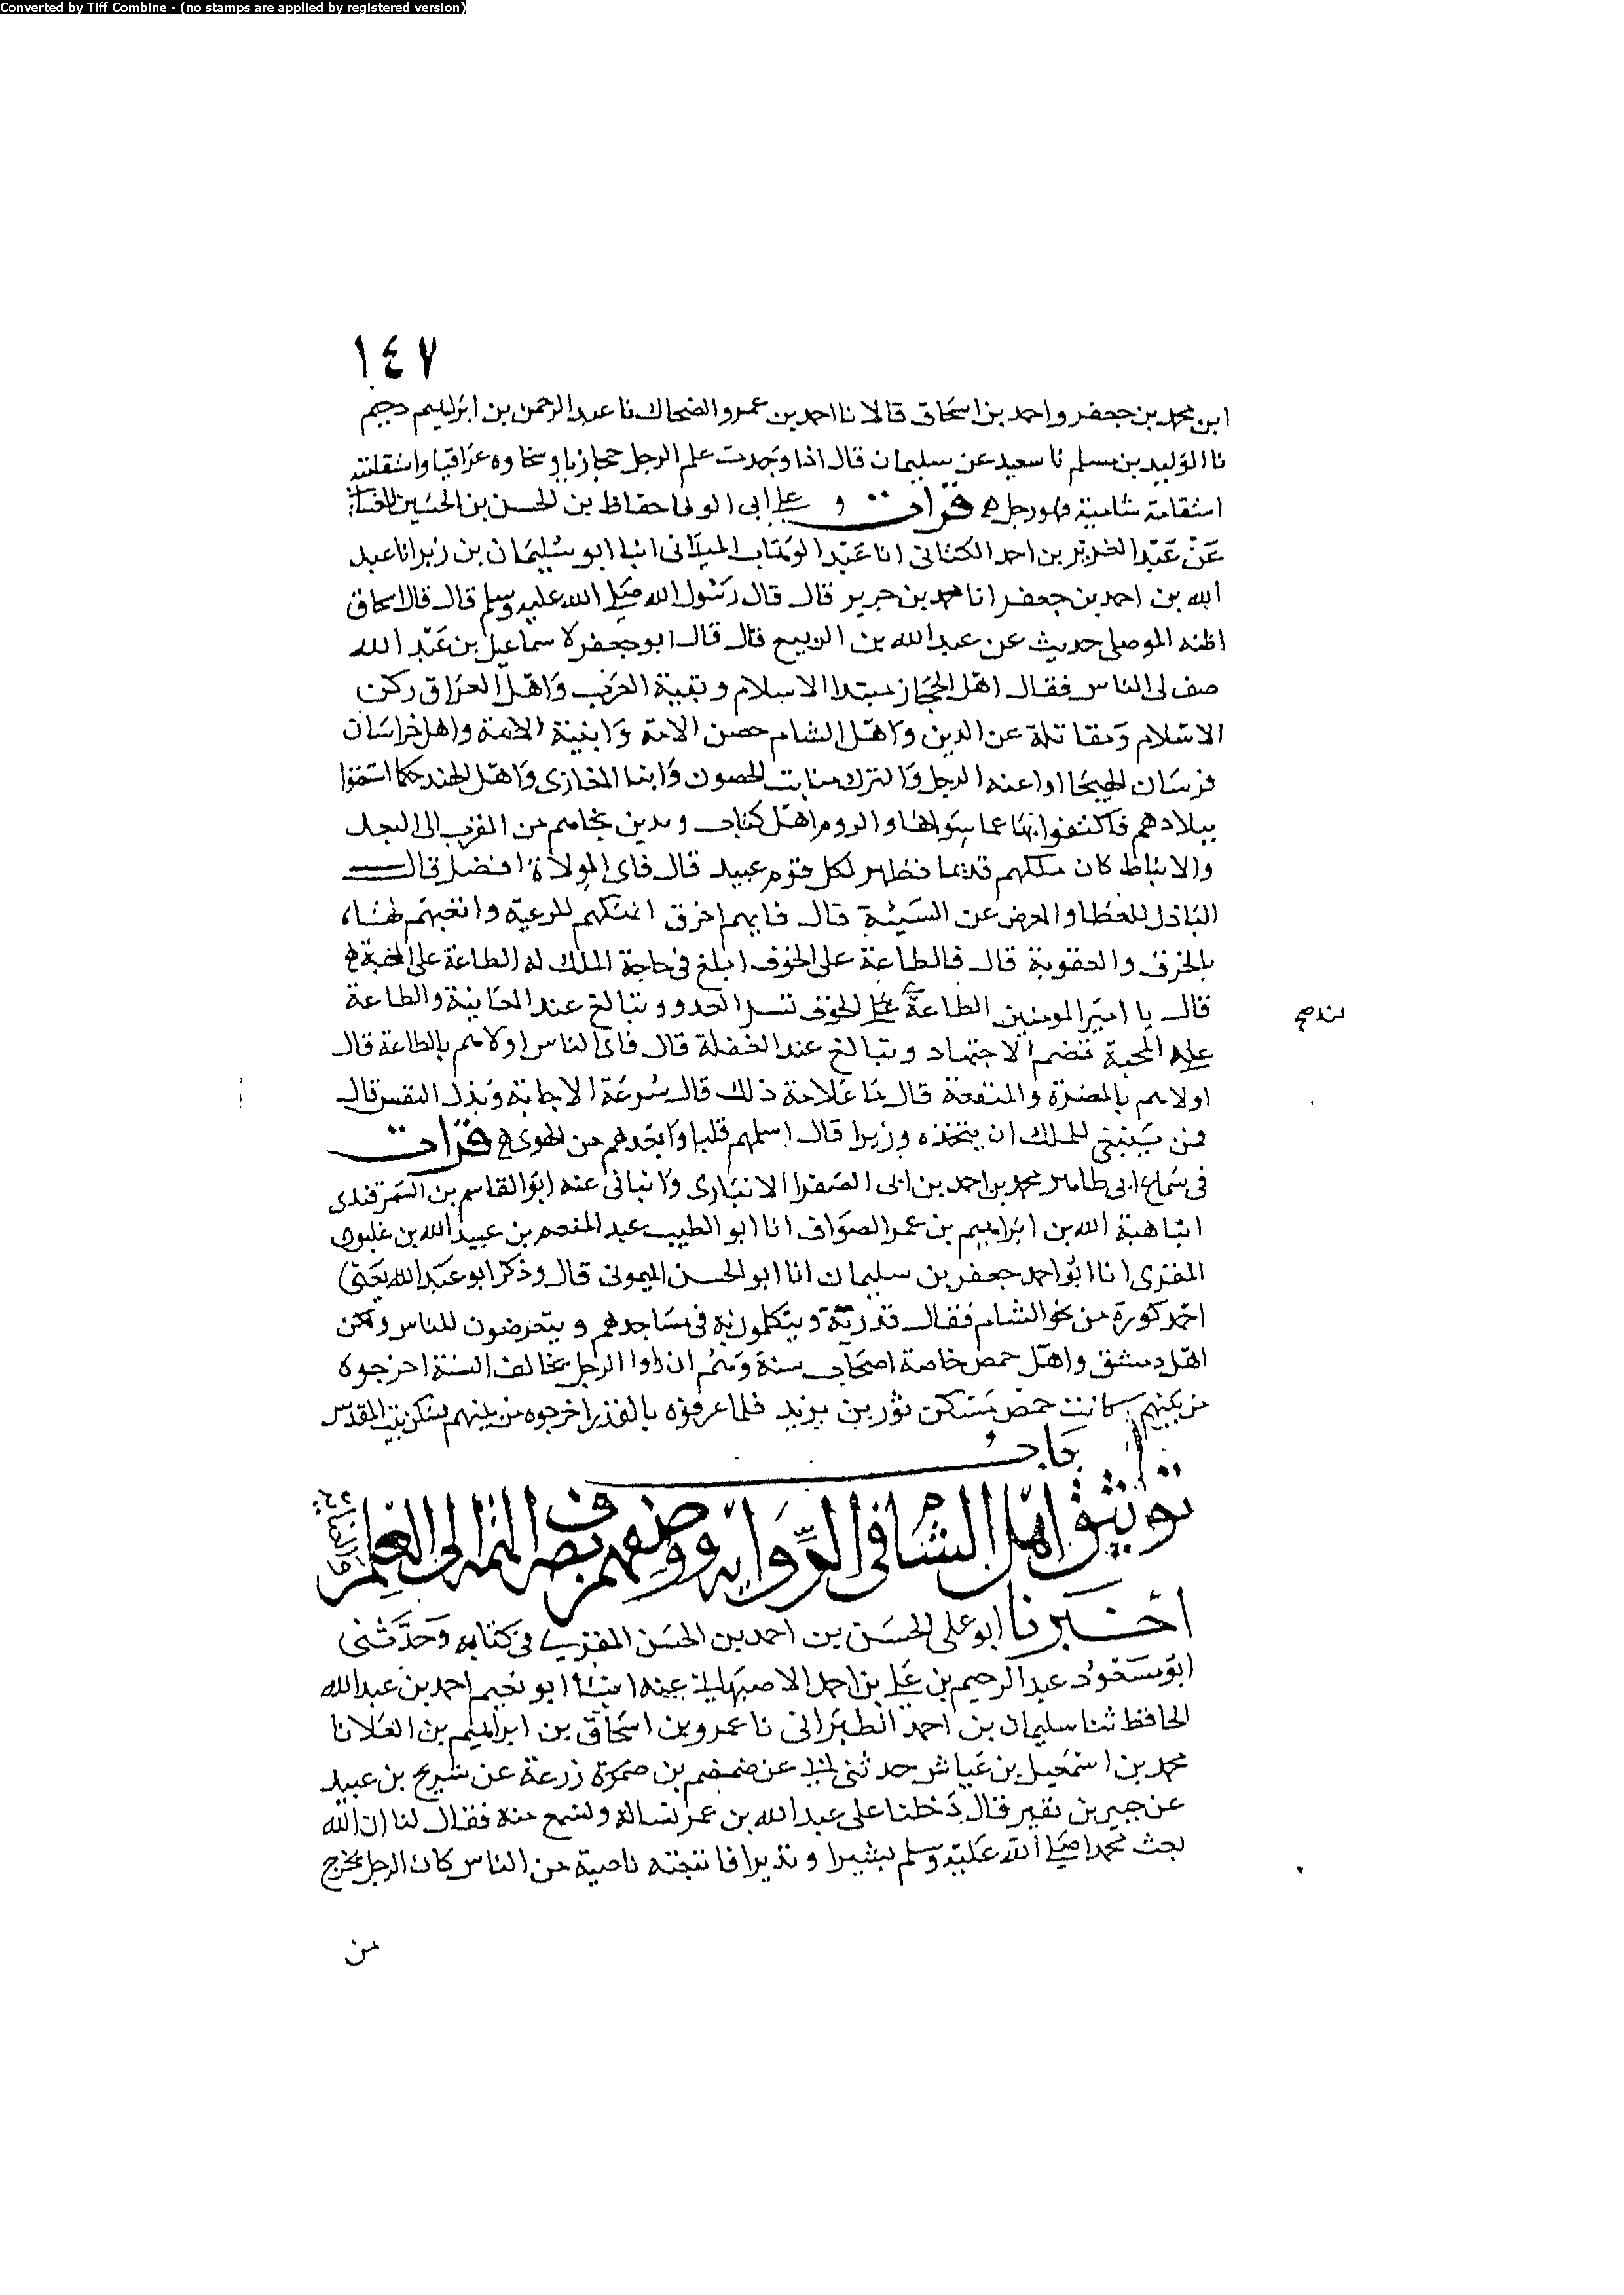 Converted by Tiff Combine - (no stamps are applied by registered version)
١٤٧
ابن محمد بن جعفر واحمد بن اسحاق قالا نا احمد بن عمرو الضحاك نا عبد الرحمن بن ابرهيم دحيم
نا الوليد بن مسلم نا سعيد عن سليمان قال اذا وجدت علم الرجل حجازيا وسخاوه عراقيا واستقامته
استقامة شامية فهو رجل قرات على ابى الوفا حفاظ بن الحسن بن الحسين
عن عبد العزيز بن احمد الكتانى انا عبد الوهاب الميدانى انبا ابو سليمان بن زبر انا عبد
الله بن احمد بن جعفر انا محمد بن جرير قال قال رسول الله صلى الله عليه وسلم قال قال اسحاق
اظنه الموصلى حديث عن عبد الله بن الربيع قال قال ابو جعفر لاسماعيل بن عبد الله
صف لى الناس فقال اهل الحجاز مبتدا الاسلام وبقية العرب واهل العراق ركن
الاسلام ومقاتلة عن الدين واهل الشام حصن الامة وابنية الائمة واهل خراسان
فرسان الهيجا واعنه الرجل والترك منابت الحصون وابنا المغازى واهل الهند حكما استغنوا
ببلادهم فاكتفوا بها عما سواها والروم اهل كتاب وتدين نجاهم من القرب الى البعد
والانباط كان ملكهم قديما فظهر لكل قوم عبيد قال فاى الولاة افضل قال
الباذل للعطا والمعرض عن السيئة قال فايهم اخرق انهكهم للرعية واتعبهم لها
بالخرق والعقوبة قال فالطاعة على الخوف ابلغ فى حاجة الملك له الطاعة على المحبة
قال يا امير المومنين الطاعة على الخوف تسر الغدر وتبالغ عند المعاينة والطاعة
على المحبة تضمر الاجتهاد وتبالغ عند الغفلة قال فاى الناس اولاهم بالطاعة قال
اولاهم بالمضرة والمنفعة قال ما علامة ذلك قال سرعة الاجابة وبذل النفس قال
فمن ينبغى للملك ان يتخذه وزيرا قال اسلمهم قلبا وابعدهم من الهوى قرات
فى سماع ابى طاهر محمد بن احمد بن ابى الصقر الانبارى وانبانى عنه ابو القاسم بن السمرقندى
انبا هبة الله بن ابراهيم بن عمر الصواف انا ابو الطيب عبد المنعم بن عبيد الله بن غلبون
المقرى انا ابو احمد جعفر بن سليمان انا ابو الحسن الميمونى قال وذكر ابو عبد الله يعنى
احمد كورة من نحو الشام فقال قدرية ويتكلمون به فى مساجدهم ويتعرضون للناس ولكن
اهل دمشق واهل حمص خاصة اصحاب سنة وهم ان راوا الرجل يخالف السنة اخرجوه
من بينهم كانت حمص مسكن ثور بن يزيد فلما عرفوه بالقدر اخرجوه من بينهم فسكن بيت المقدس
باب
توثيق اهل الشام فى الرواية ووصفهم بصرف الهمة الى العلم والعناية
اخبرنا ابو على الحسن بن احمد بن الحسن المقرى فى كتابه وحدثنى
ابو مسعود عبد الرحيم بن على بن احمد الاصبهانى عنه انبا ابو نعيم احمد بن عبد الله
الحافظ ثنا سليمان بن احمد الطبرانى نا عمرو بن اسحاق بن ابراهيم بن العلا نا
محمد بن اسمعيل بن عياش حدثنى ابى عن ضمضم بن زرعة عن شريح بن عبيد
عن جبير بن نفير قال دخلنا على عبد الله بن عمر نساله ونسمع منه فقال لنا ان الله
بعث محمدا صلى الله عليه وسلم بشيرا ونذيرا فاتبعته ناصية من الناس كان الرجل يخرج
من